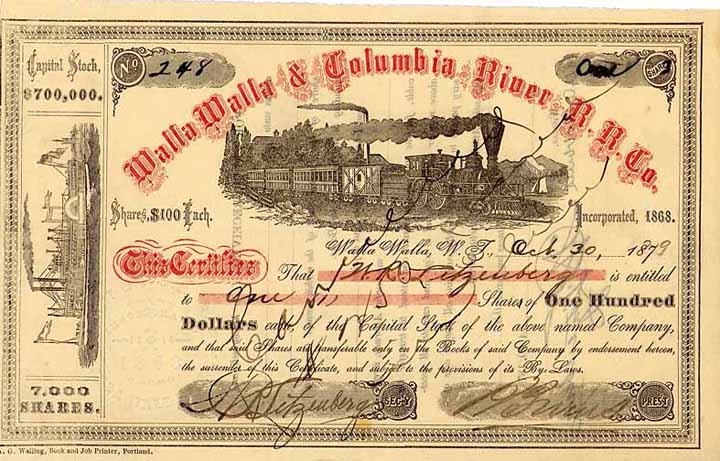 Capital Stock,
$700,000.
No 248
One SHARE
Walla Walla & Columbia River R. R. Co.
Shares, $100 Each.
Incorporated, 1868.
Walla Walla, W. T., Oct 30, 1879
This Certifies That is entitled
to One Shares of One Hundred
Dollars each, of the Capital Stock of the above named Company,
and that said Shares are transferable only on the Books of said Company by endorsement hereon,
the surrender of this Certificate, and subject to the provisions of its By-Laws.
7,000
SHARES.
SEC'Y
PRES'T
A. G. Walling, Book and Job Printer, Portland.